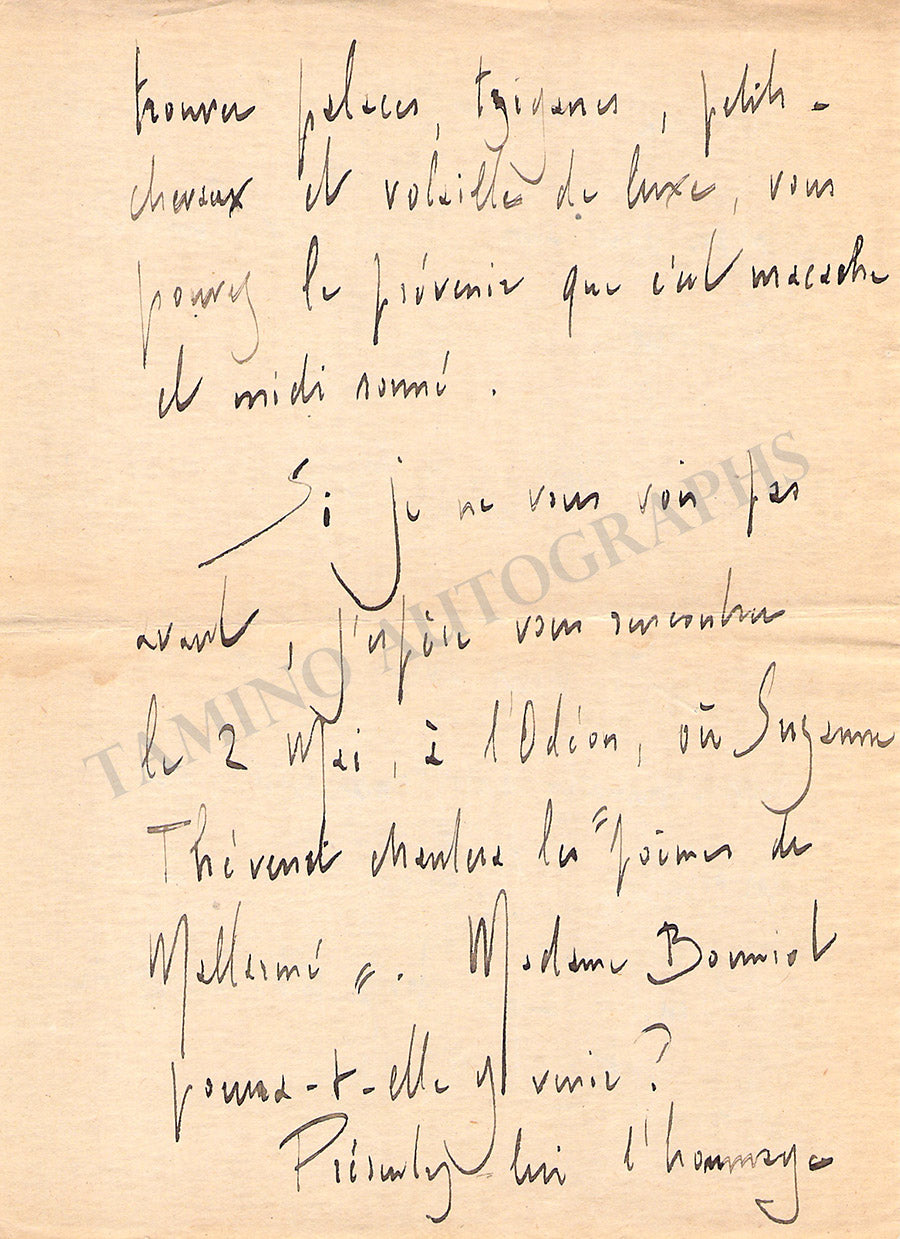 trouver palaces, tziganes, petits-
chevaux et volaille de luxe, vous
pouvez le prévenir que c'est macache
et midi sonné.
Si je ne vous vois pas
avant, j'espère vous rencontrer
le 2 Mai, à l'Odéon, où Suzanne
Thévenet chantera les "poèmes de
Mallarmé". Madame Bonniot
pourra-t-elle y venir?
Présentez lui l'hommage
TAMINO AUTOGRAPHS